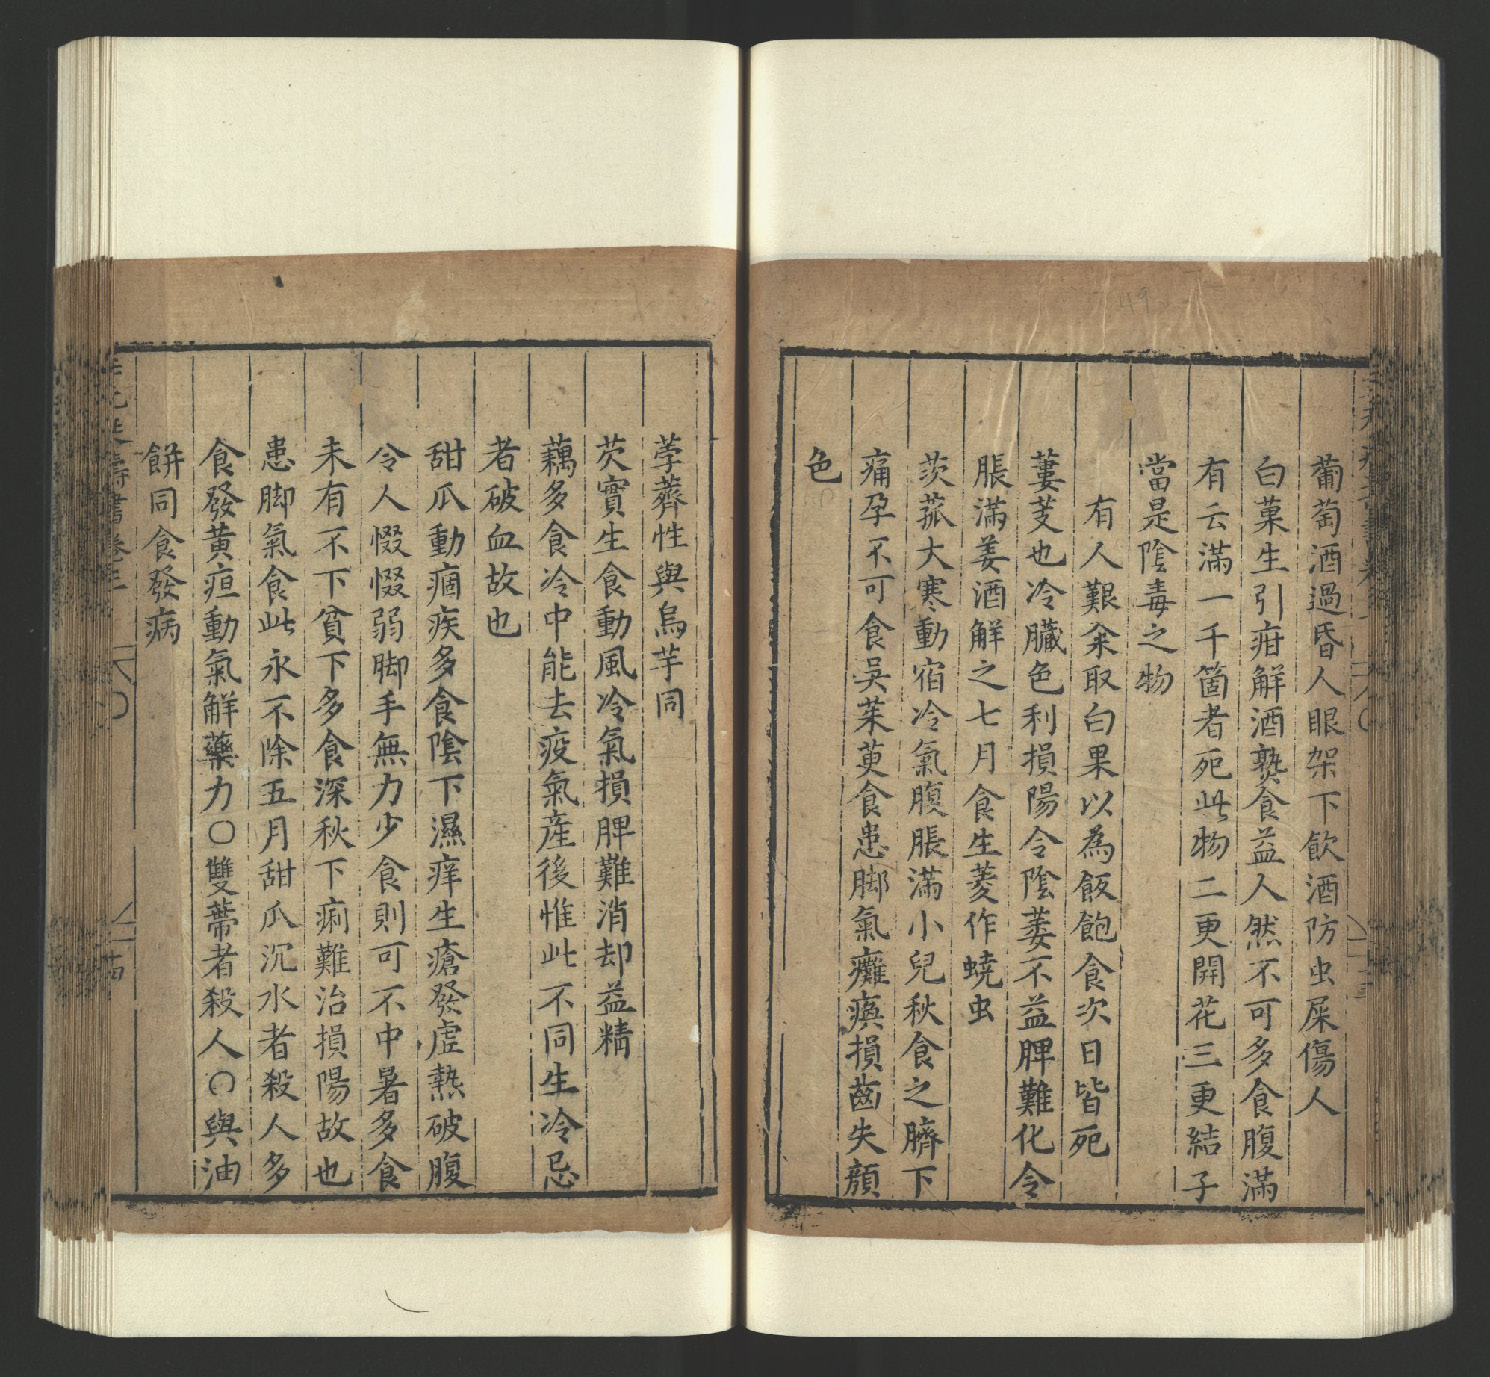 葡萄酒過昏人眼架下飲酒防虫屎傷人
白菓生引疳解酒熟食益人然不可多食腹滿
有云滿一千箇者死此物二更開花三更結子
當是陰毒之物
有人艱籴取白果以為飯飽食次日皆死
菱芰也冷臟色利損陽令陰萎不益脾難化令
脹滿姜酒解之七月食生菱作蟯虫
茨菰大寒動宿冷氣腹脹滿小兒秋食之臍下
痛孕不可食吳茱萸食患脚氣癱瘓損齒失顔
色
荸薺性與烏芋同
芡實生食動風冷氣損脾難消却益精
藕多食冷中能去疫氣産後惟此不同生冷忌
者破血故也
甜瓜動痼疾多食陰下濕痒生瘡發虛熱破腹
令人惙惙弱脚手無力少食則可不中暑多食
未有不下貧下多食深秋下痢難治損陽故也
患脚氣食此永不除五月甜瓜沉水者殺人多
食發黄疸動氣解藥力〇雙蔕者殺人〇與油
餅同食發病